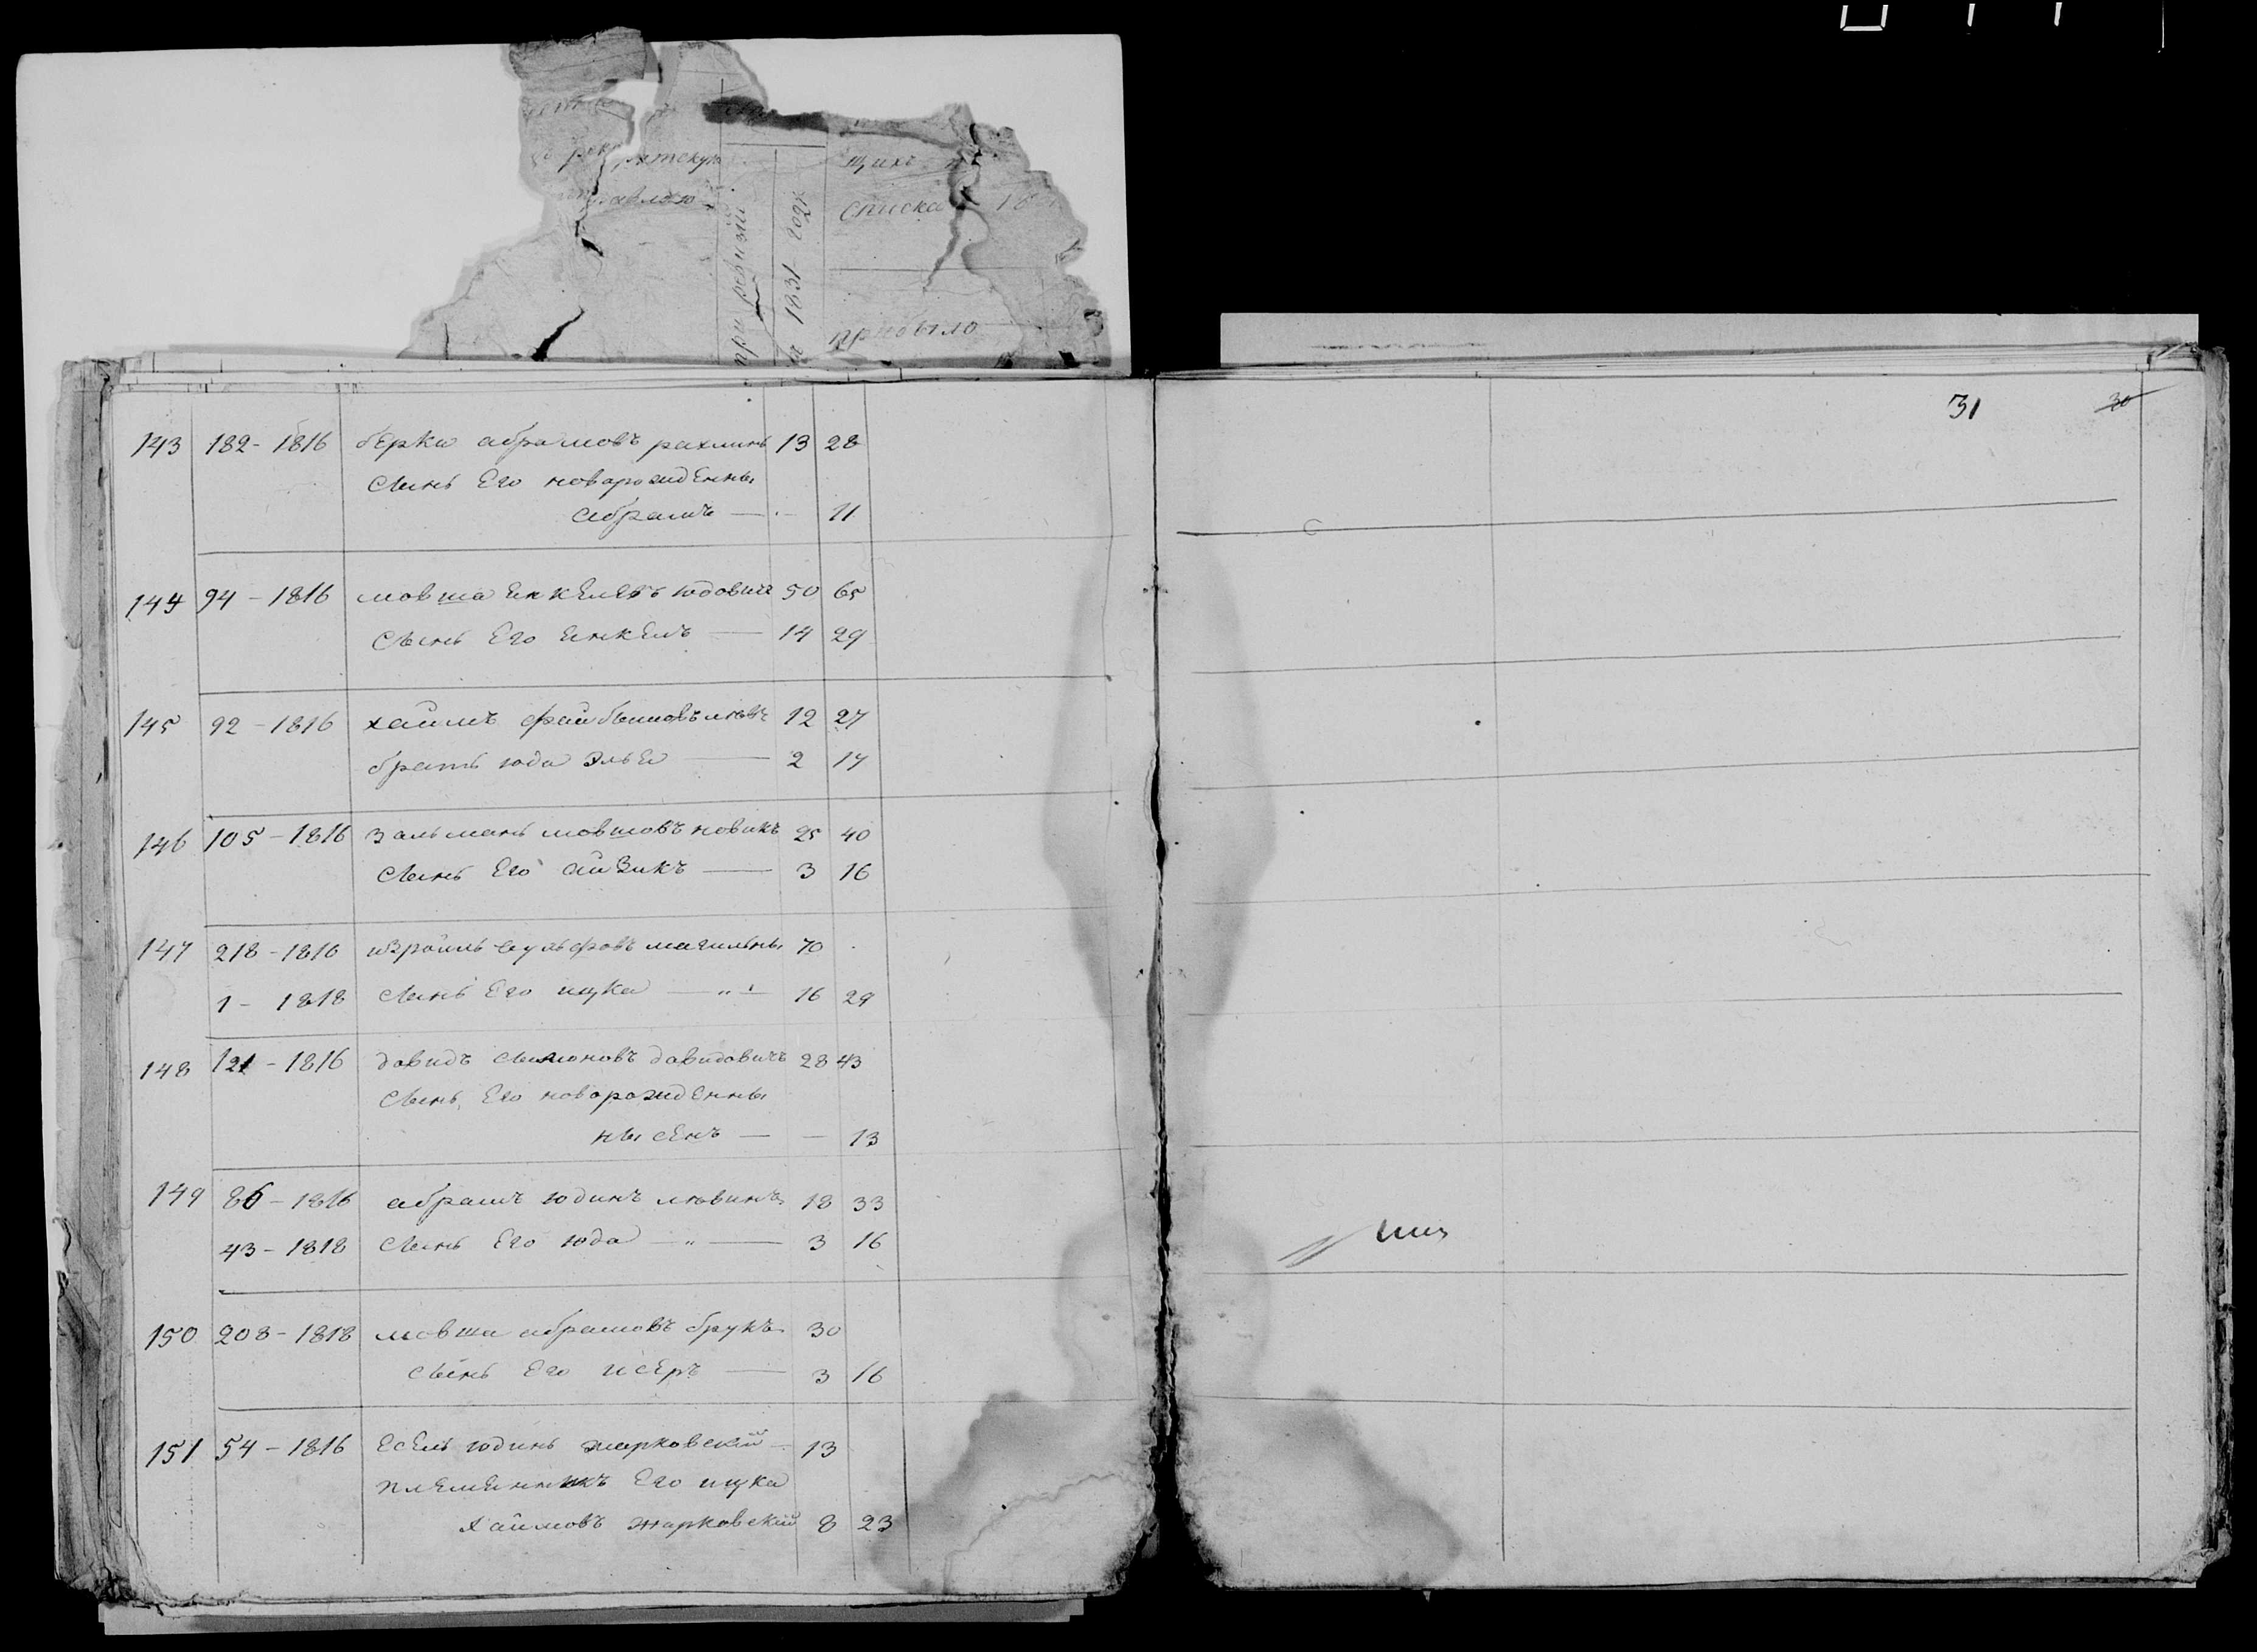 щихъ
списка 18
при ревизіи
1831 года
прибыло
31
30
143 182-1816 берка абрамовъ рахлинъ 13 28
сынъ Его новорожденны
абрамъ — - 11
144 94-1816 мовша Енкелевъ юдовичъ 50 65
сынъ Его Енкель — 14 29
145 92-1816 хаимъ файбышовъ 12 27
братъ юда Элья — 2 17
146 105-1816 Зальманъ мовшовъ новикъ 25 40
сынъ Его айзикъ — 3 16
147 218-1816 израиль магильны 70
1-1818 сынъ Его ицка — 16 29
148 121-1816 давидъ симоновъ давидовичъ 28 43
сынъ Его новорожденны
нысенъ — - 13
149 86-1816 абрамъ юдинъ левинъ 18 33
43-1818 сынъ Его юда — 3 16
150 208-1818 мовша абрамовъ брукъ 30
сынъ Его исеръ — 3 16
151 54-1816 Есель юдинъ жарковскій 13
племенникъ Его ицка
хаимовъ жарковскій 8 23